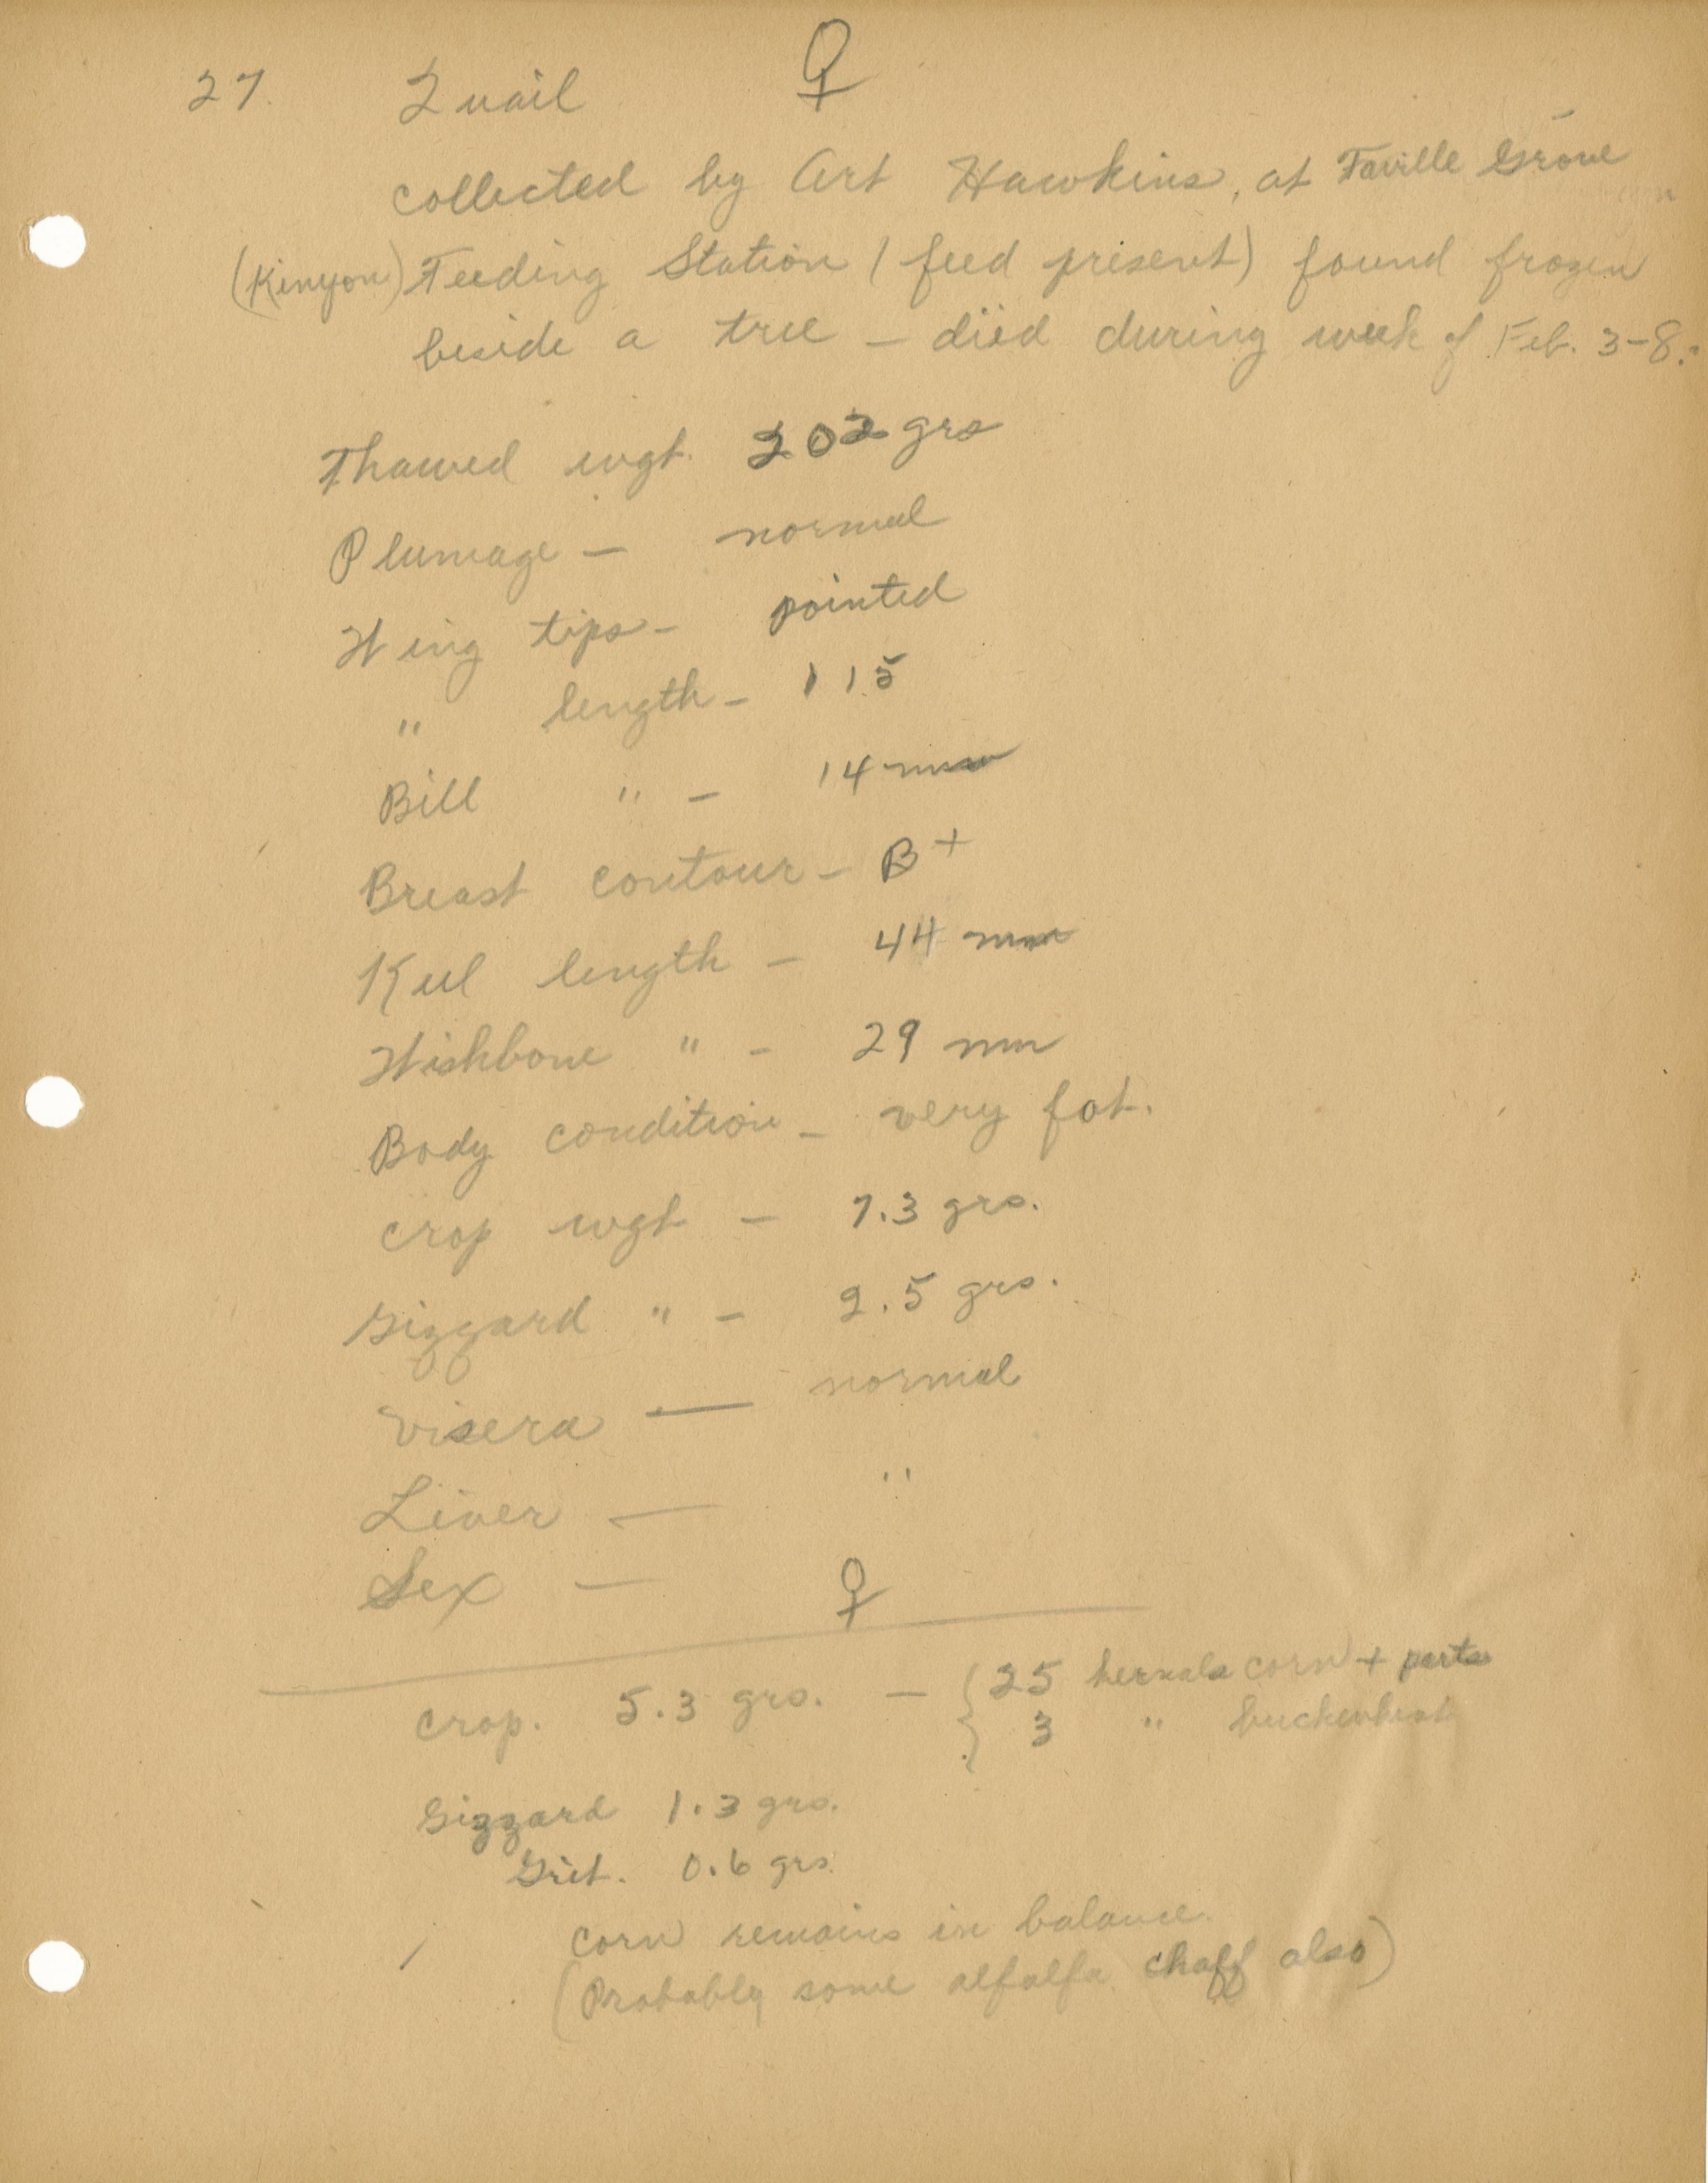 27. Quail ♀
collected by Art Hawkins, at Faville Grove
(Kinyon) Feeding Station (feed present) found frozen
beside a tree – died during week of Feb. 3-8.
Thawed wgt. 202 grs
Plumage – normal
Wing tips – pointed
" length – 115
Bill " – 14 mm
Breast contour – B+
Keel length – 44 mm
Wishbone " – 29 mm
Body condition – very fat.
Crop wgt – 7.3 grs.
Gizzard " – 2.5 grs.
Visera — normal
Liver — "
Sex — ♀
Crop. 5.3 grs. — { 25 kernals corn + parts
3 " buckwheat
Gizzard 1.3 grs.
Grit. 0.6 grs.
Corn remains in balance.
(Probably some alfalfa chaff also)